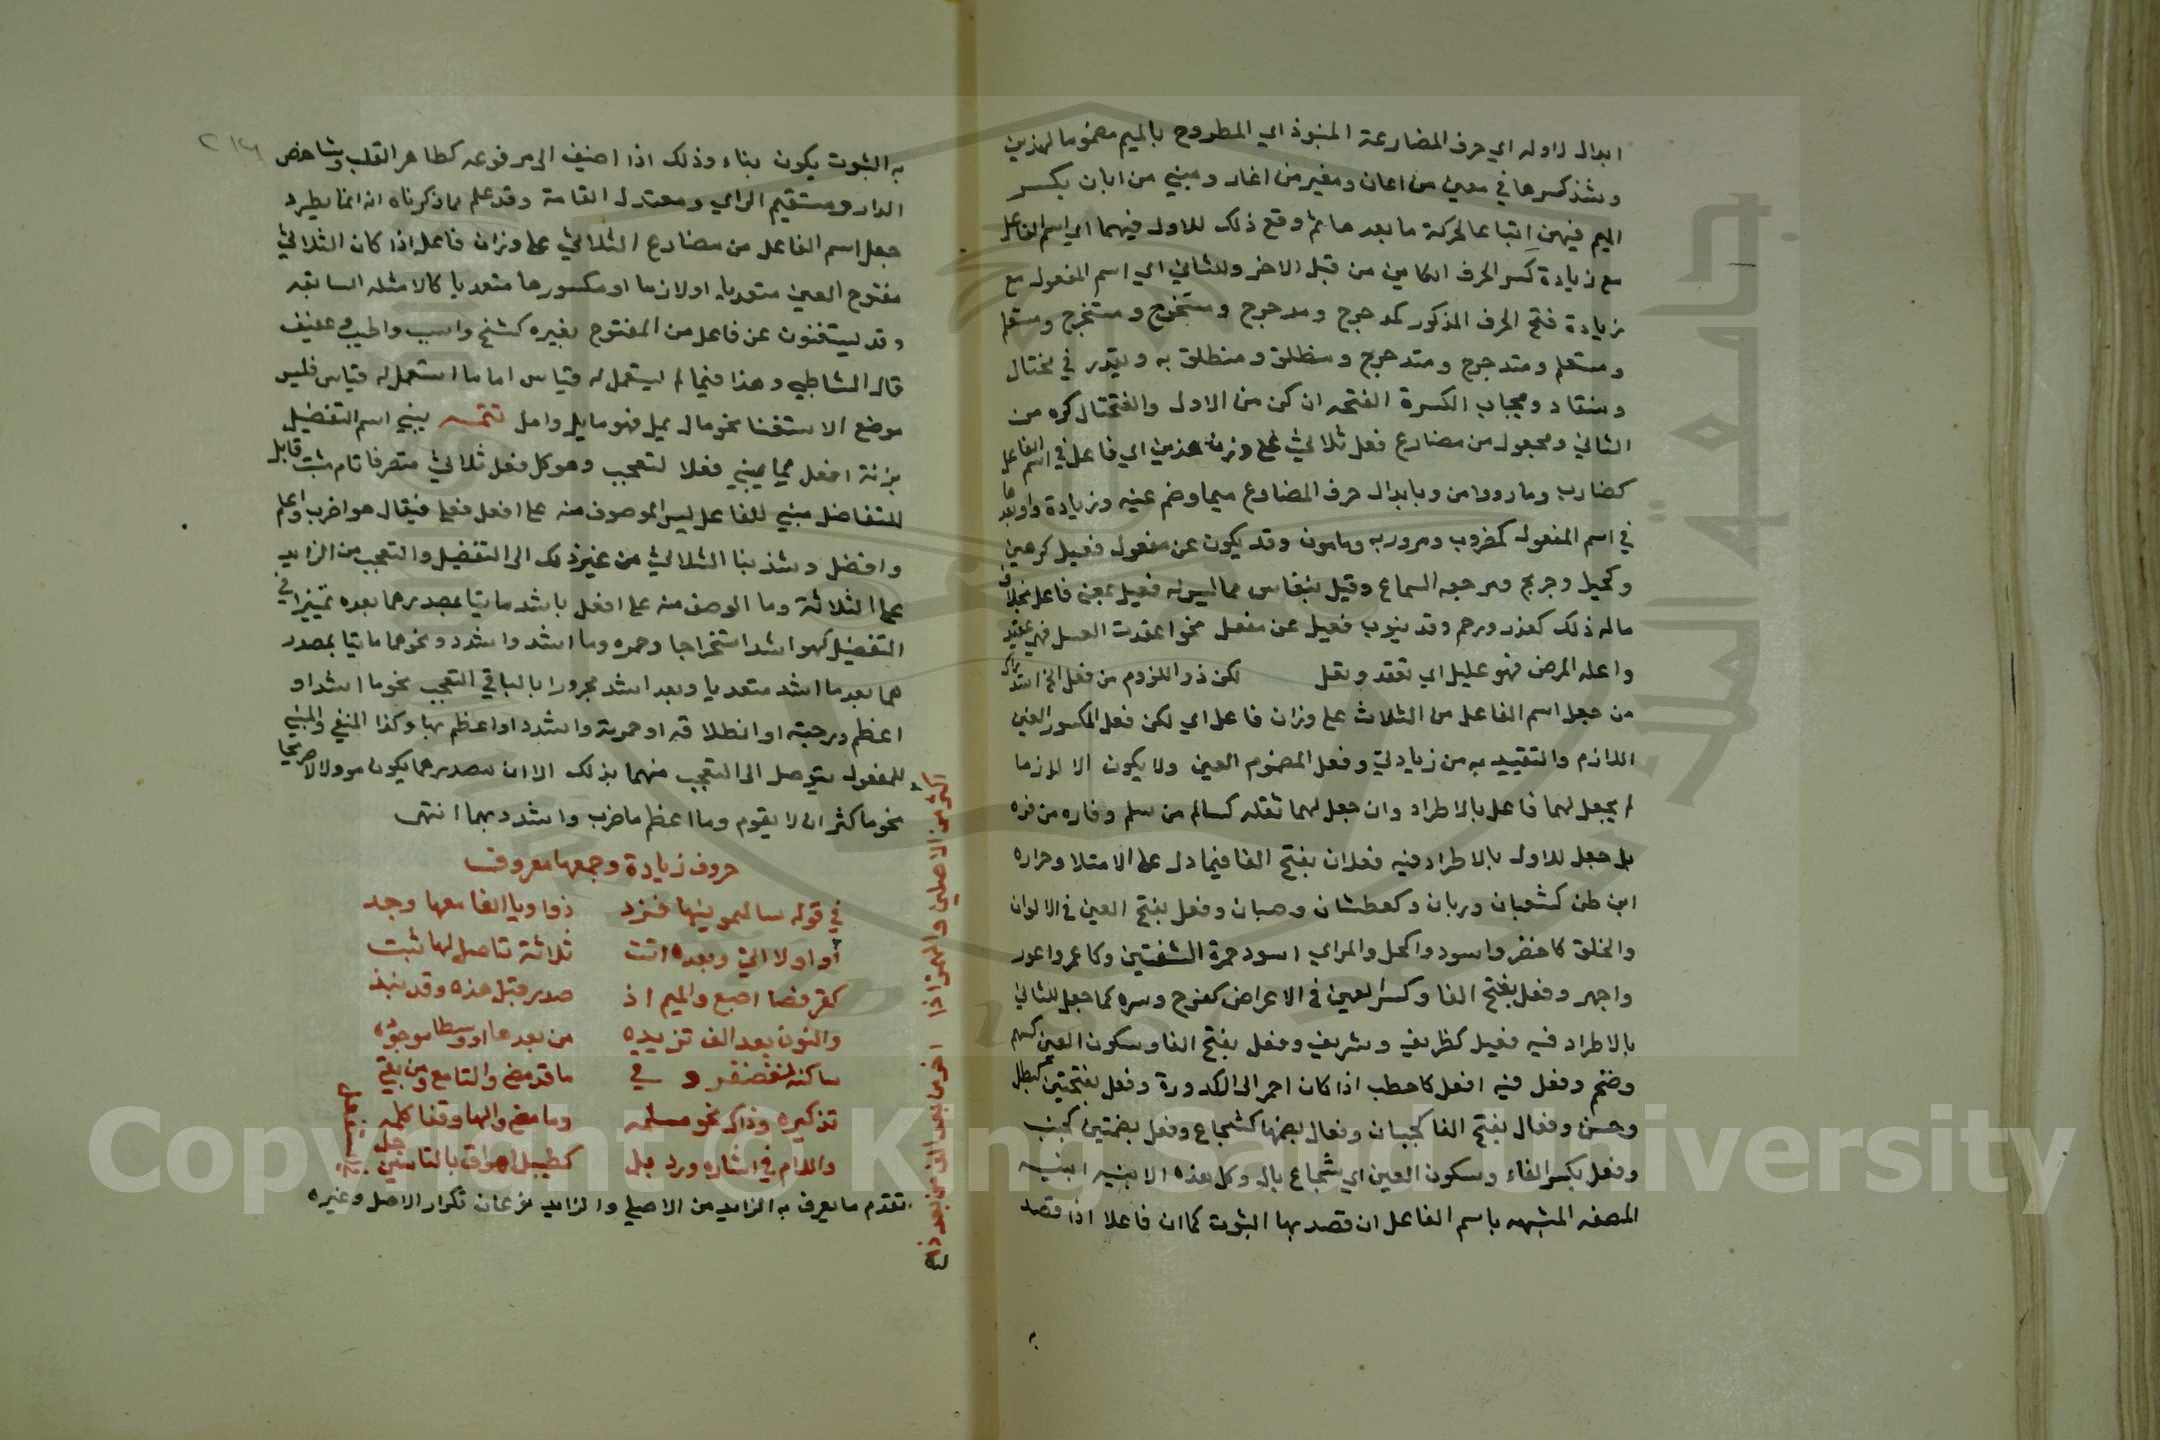 ابدال اوله اي حرف المضارعة المنبوذ اي المطروح بالميم مضموما لهذين
وشذ كسرها في معين من اعان ومغير من اغار ومبني من ابان بكسر
الميم فيهن اتباعا لحركة ما بعدها ثم وقع ذلك للاول فيهما اي اسم الفاعل
مع زيادة كسر الحرف الكاين من قبل الاخر وللثاني اي اسم المفعول مع
زيادة فتح الحرف المذكور كمدحرج ومدحرج ومستخرج ومستخرج ومتعلم
ومتعلم ومتدحرج ومتدحرج ومنطلق ومنطلق به ويقدر في مختال
ومنقاد ومجاب الكسرة الفتحه ان كن من الاول والفتحتان كره من
الثاني ومجعول من مضارع فعل ثلاثي على وزن هذين اي فاعل في اسم الفاعل
كضارب ومار وامن وبابدال حرف المضارع ميما وضم عينه وزيادة واو بعدها
في اسم المفعول كمضروب وممرور به ومامون وقد يكون عن مفعول فعيل كرهين
وكحيل وجريح ومرجعه السماع وقيل ينقاس مما ليس له فعيل بمعنى فاعل بخلاف
ماله ذلك كعذر ورحم وقد ينوب فعيل عن مفعل نحو اعقدت العسل فهو عقيد
واعله المرض فهو عليل اي تعقد وتعل لكن ذو اللزوم من فعل الخ استدراك
من جعل اسم الفاعل من الثلاث على وزان فاعل اي لكن فعل المكسور العين
اللازم والتقييد به من زيادتي وفعل المضموم العين ولا يكون الا لازما
لم يجعل لهما فاعل بالاطراد وان جعل لهما نقله كسالم من سلم وفاره من فره
بل جعل للاول بالاطراد فيه فعلان بفتح الفا فيما دل على الامتلا وحراره
البطن كشعبان وريان وكعطشان وصبان وفعل بفتح العين في الالوان
والخلق كاخضر واسود واكحل والمراي اسود حمرة الشفتين وكاعمر واعور
واجهر وفعل بفتح الفا وكسر العين في الاعراض كفرح وسره كما جعل للثاني
بالاطراد فيه فعيل كظريف وشريف وفعل بفتح الفا وسكون العين كسهم
وضخم وفعل فيه افعل كاحطب اذا كان احمر الى الكدورة وفعل بفتحتين كبطل
وحسن وفعال بفتح الفا كجبان وفعال بضمها كشجاع وفعل بضمتين كجنب
وفعل بكسر الفاء وسكون العين اي شجاع بال وكل هذه الابنيه ابنيه
الصفه المشبهه باسم الفاعل ان قصد بها الثبوت كما ان فاعلا اذا قصد
به الثبوت يكون بناء وذلك اذا اضيف الى مرفوعه كطاهر القلب وشاحض
الدار ومستقيم الراي ومعتدل القامة وقد علم بما ذكرناه انه انما يطرد
جعل اسم الفاعل من مضارع الثلاثي على وزان فاعل اذا كان الثلاثي
مفتوح العين متعديا او لازما او مكسورها متعديا كالامثله السابقه
وقد يستغنون عن فاعل من المفتوح بغيره كشيخ واشيب واطيب وعفيف
قال الشاطبي وهذا فيما لم يستعمل له قياس اما ما استعمل له قياس فليس
موضع الاستغنا نحو مال يميل فهو مايل واميل تتمه يبني اسم التفضيل
بزنة افعل مما يبني فعلا لتعجب وهو كل فعل ثلاثي متصرفا تام مثبت قابل
للتفاضل مبني للفاعل ليس الموصوف منه على افعل فعلى فيقال هو اضرب واعلم
وافضل وشذ بنا الثلاثي من غير ذلك الى التفضيل والتعجب من الزايد
على الثلاثة وما الوصف منه على افعل باشد ماتيا بمصدرهما بعده تمييزا في
التفضيل كهو اشد استخراجا وحمره وما اشد واشدد ونحوهما ماتيا بمصدر
هما بعد ما اشد متعديا وبعد اشد مجرورا بالباقي التعجب نحو ما اشد او
اعظم دحرجته او انطلاقه او حمرته واشدد او اعظم بها وكذا المنفي والمبني
للمفعول يتوصل الى التعجب منهما بذلك الا ان مصدرهما يكون موولا لا صريحا
نحو ما كثر ان لا يقوم وما اعظم ما ضرب واشدد بهما انتهى
حروف زيادة وجمعها معروف
في قوله سالتمونيها فزد ذوا ويا الفا معها وجد
او اولا التي وبعده اتت ثلاثة تاصل لها ثبت
كقرفصا اصبع والميم اذ صدر قبل هذه وقد نبذ
والنون بعد الف تزيده من بعدها او وسطا موجوده
ساكنة لغضنفر و في ما قد مضى والتا مع ومن بقي
تذكيره وذاكر نحو مسلمه وما مضى والها وقفا كلمه
واللام في اشاره ورد بل كطيسل اهراق بالتا سين
تقدم ما يعرف به الزايد من الاصلي والزايد نوعان تكرار الاصل وغيره
اكثر من الاصلين والهمز اذا اخر من بعد الف من بعد ذا